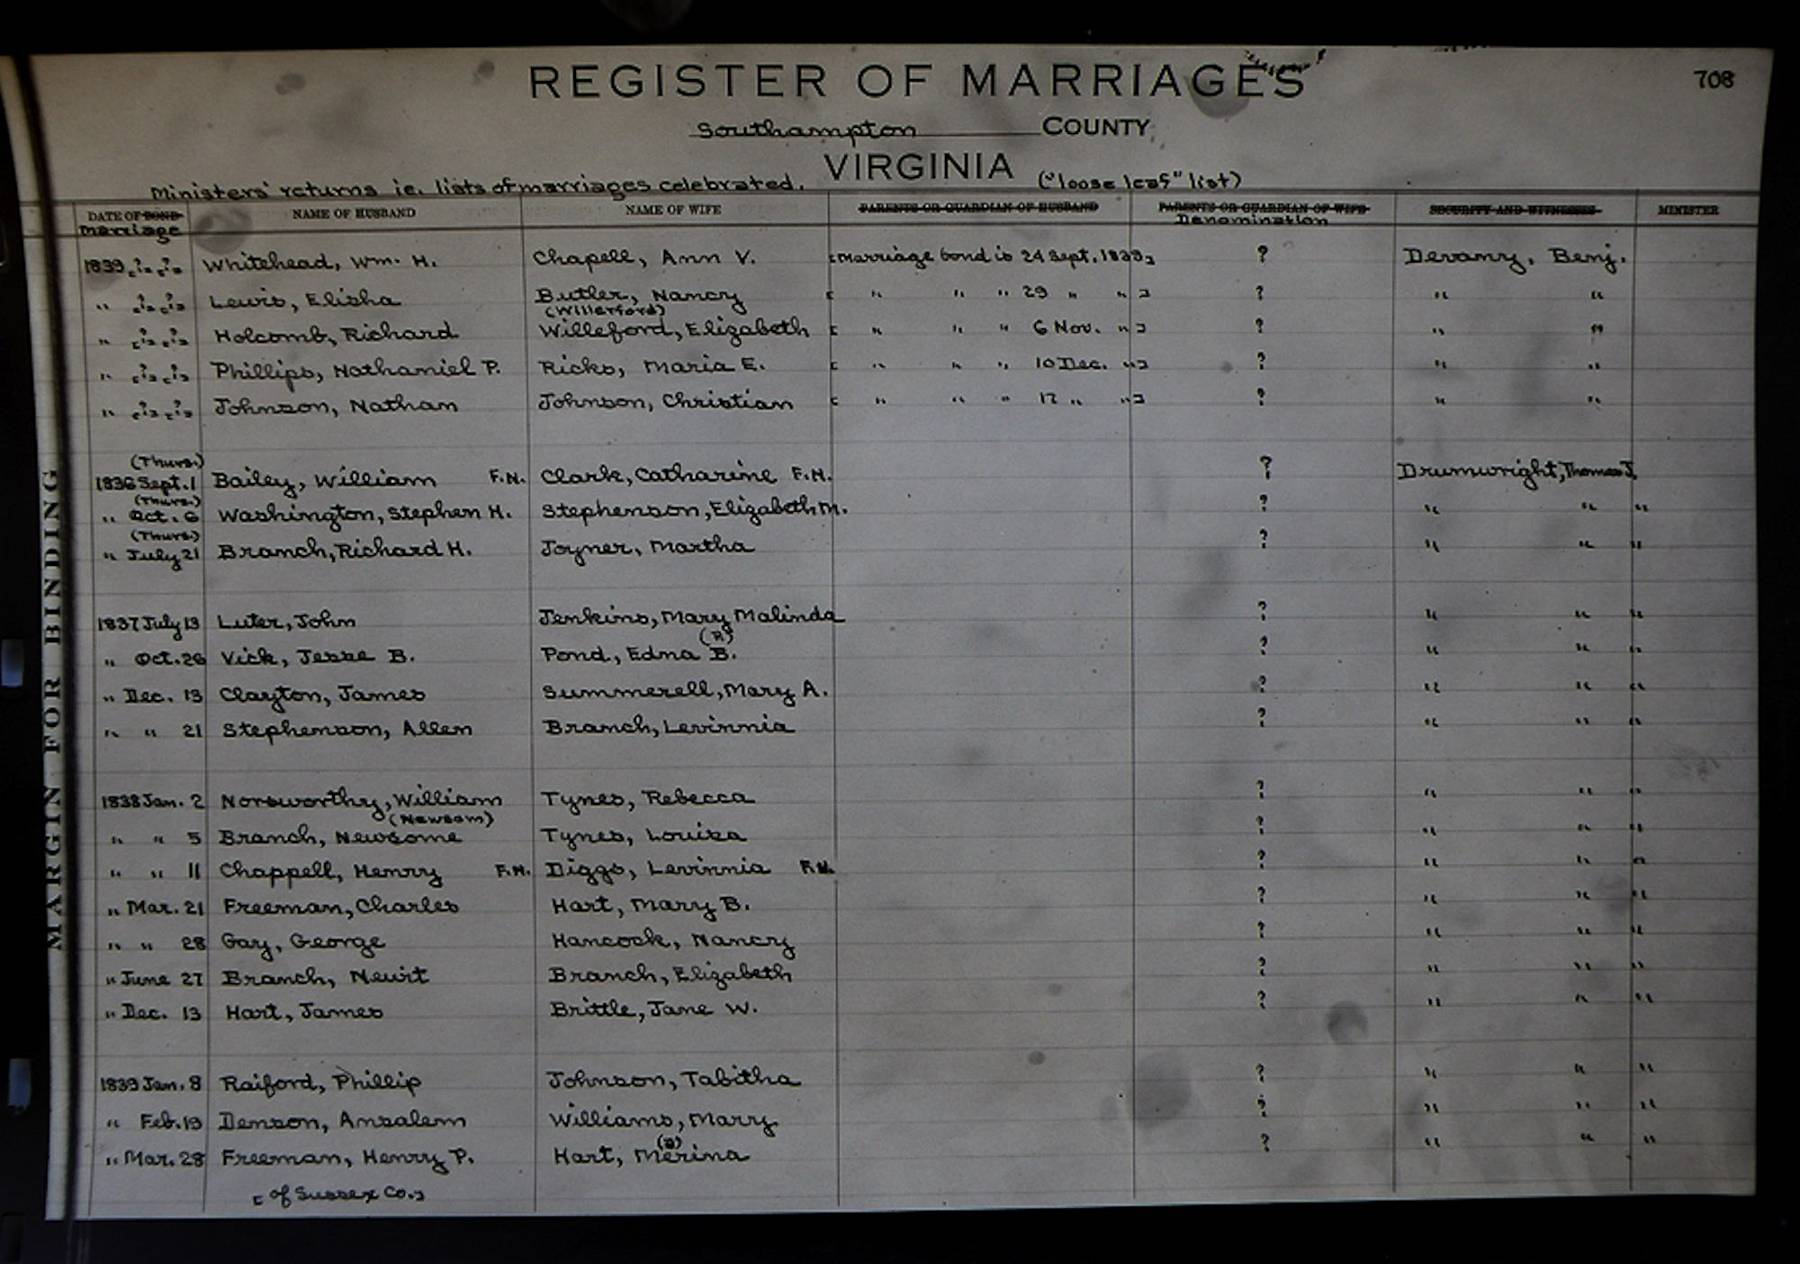 REGISTER OF MARRIAGES 708
Southampton COUNTY
VIRGINIA
Ministers' returns ie. lists of marriages celebrated. ("loose leaf" list)
DATE OF BOND NAME OF HUSBAND NAME OF WIFE PARENTS OR GUARDIAN OF HUSBAND PARENTS OR GUARDIAN OF WIFE SECURITY AND WITNESSES MINISTER
marriage Denomination
1839 [?] [?] Whitehead, Wm. H. Chapell, Ann V. [marriage bond is 24 Sept. 1839] ? Devany, Benj.
" [?] [?] Lewis, Elisha Butler, Nancy [ " " " 29 " " ] ? " "
(Willerford)
" [?] [?] Holcomb, Richard Willeford, Elizabeth [ " " " 6 Nov. " ] ? " "
" [?] [?] Phillips, Nathaniel P. Ricks, Maria E. [ " " " 10 Dec. " ] ? " "
" [?] [?] Johnson, Nathan Johnson, Christian [ " " " 17 " " ] ? " "
(Thurs.)
1836 Sept. 1 Bailey, William F.N. Clark, Catharine F.N. ? Drumwright, Thomas J.
(Thurs.)
" Oct. 6 Washington, Stephen H. Stephenson, Elizabeth M. ? " " "
(Thurs.)
" July 21 Branch, Richard H. Joyner, Martha ? " " "
1837 July 13 Luter, John Jenkins, Mary Malinda ? " " "
(R)
" Oct. 26 Vick, Jesse B. Pond, Edna B. ? " " "
" Dec. 13 Clayton, James Summerell, Mary A. ? " " "
" " 21 Stephenson, Allen Branch, Levinnia ? " " "
1838 Jan. 2 Norsworthy, William Tynes, Rebecca ? " " "
(Newsom)
" " 5 Branch, Newsome Tynes, Louiza ? " " "
" " 11 Chappell, Henry F.N. Diggs, Levinnia F.N. ? " " "
" Mar. 21 Freeman, Charles Hart, Mary B. ? " " "
" " 28 Gay, George Hancock, Nancy ? " " "
" June 27 Branch, Newit Branch, Elizabeth ? " " "
" Dec. 13 Hart, James Brittle, Jane W. ? " " "
1839 Jan. 8 Raiford, Phillip Johnson, Tabitha ? " " "
" Feb. 19 Denson, Ansalem Williams, Mary ? " " "
(a)
" Mar. 28 Freeman, Henry P. Hart, Merina ? " " "
[of Sussex Co.]
MARGIN FOR BINDING